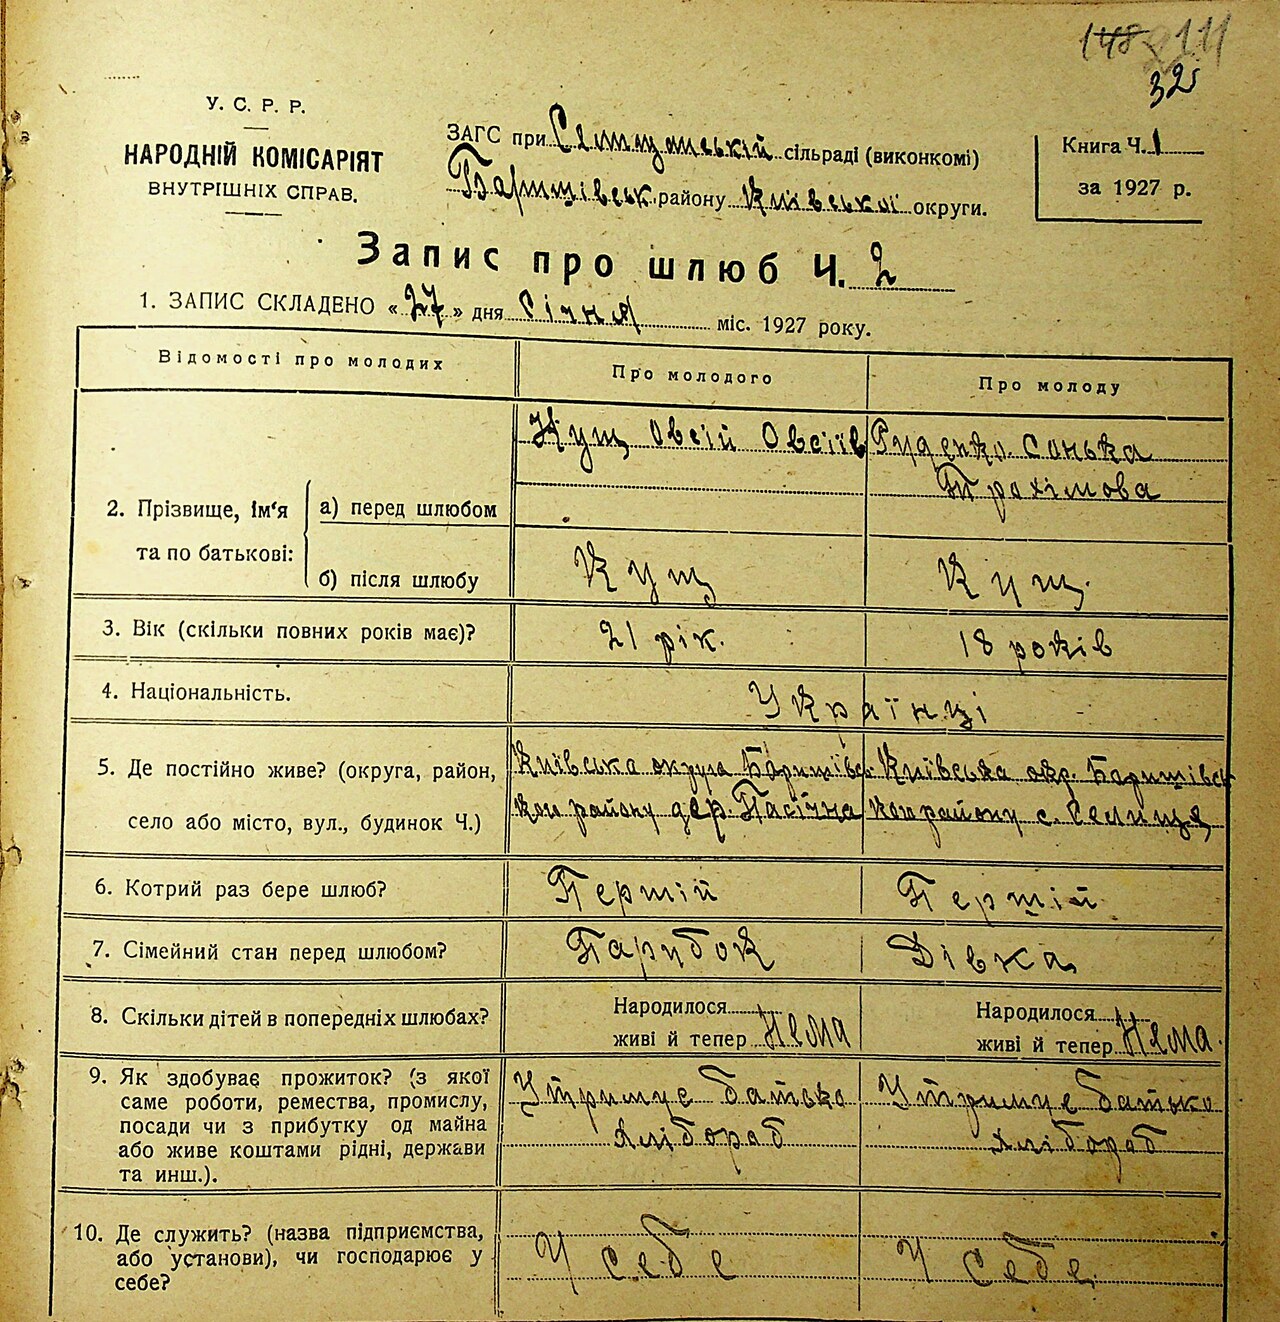 148 211
32
У. С. Р. Р.
НАРОДНІЙ КОМІСАРІЯТ
ВНУТРІШНІХ СПРАВ.
ЗАГС при Селищанській сільраді (виконкомі)
Баришівськ. району Київської округи.
Книга Ч. 1
за 1927 р.
Запис про шлюб Ч. 2
1. ЗАПИС СКЛАДЕНО «27» дня Січня міс. 1927 року.
Відомості про молодих
Про молодого
Про молоду
2. Прізвище, ім'я та по батькові:
а) перед шлюбом
Кущ Овсій Овсіїв
Руденко Сонька
Трохімова
б) після шлюбу
Кущ
Кущ.
3. Вік (скільки повних років має)?
21 рік.
18 років
4. Національність.
Українці
5. Де постійно живе? (округа, район,
село або місто, вул., будинок Ч.)
Київська округа Баришівсь
кого району дер. Пасічна
Київська окр. Баришівсь
кого району с. Селище
6. Котрий раз бере шлюб?
Першій
Першій
7. Сімейний стан перед шлюбом?
Парубок
Дівка
8. Скільки дітей в попередніх шлюбах?
Народилося
живі й тепер Нема
Народилося
живі й тепер Нема.
9. Як здобуває прожиток? (з якої
саме роботи, ремества, промислу,
посади чи з прибутку од майна
або живе коштами рідні, держави
та инш.).
Утримує батько
хлібороб
Утримує батько
хлібороб
10. Де служить? (назва підприємства,
або установи), чи господарює у
себе?
У себе
У себе